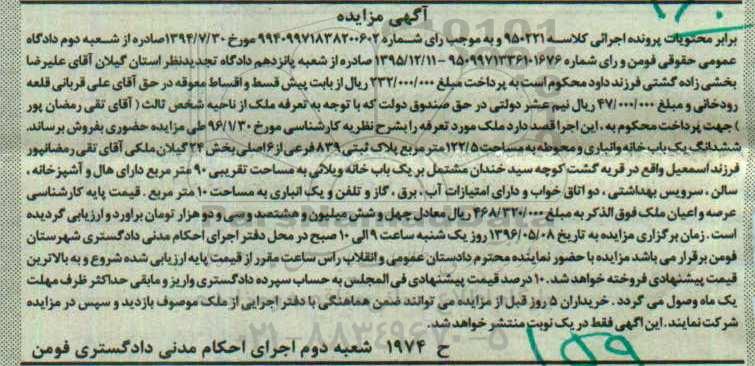 آگهی مزایده
برابر محتویات پرونده اجرائی کلاسه ۹۵۰۲۲۱ و به موجب رای شماره ۹۹۴۰۹۹۷۱۸۳۸۲۰۰۶۰۲ مورخ ۱۳۹۴/۷/۳۰ صادره از شعبه دوم دادگاه
عمومی حقوقی فومن و رای شماره ۹۵۰۹۹۷۱۳۳۶۱۰۱۶۷۶ -۱۳۹۵/۱۲/۱۱ صادره از شعبه پانزدهم دادگاه تجدیدنظر استان گیلان آقای علیرضا
بخشی زاده گشتی فرزند داود محکوم است به پرداخت مبلغ ۲۳۲/۰۰۰/۰۰۰ ریال از بابت پیش قسط و اقساط معوقه در حق آقای علی قربانی قلعه
رودخانی و مبلغ ۴۷/۰۰۰/۰۰۰ ریال نیم عشر دولتی در حق صندوق دولت که با توجه به تعرفه ملک از ناحیه شخص ثالث ( آقای تقی رمضان پور
) جهت پرداخت محکوم به ، این اجرا قصد دارد ملک مورد تعرفه را بشرح نظریه کارشناسی مورخ ۹۶/۱/۳۰ طی مزایده حضوری بفروش برساند.
ششدانگ یک باب خانه وانباری و محوطه به مساحت ۱۲۲/۵ متر مربع پلاک ثبتی ۸۳۹ فرعی از ۶ اصلی بخش ۲۴ گیلان ملکی آقای تقی رمضانپور
فرزند اسمعیل واقع در قریه گشت کوچه سید خندان مشتمل بر یک باب خانه ویلائی به مساحت تقریبی ۹۰ متر مربع دارای هال و آشپزخانه ،
سالن ، سرویس بهداشتی ، دو اتاق خواب و دارای امتیازات آب ، برق ، گاز و تلفن و یک انباری به مساحت ۱۰ متر مربع . قیمت پایه کارشناسی
عرصه و اعیان ملک فوق الذکر به مبلغ ۴۶۸/۳۲۰/۰۰۰ ریال معادل چهل و شش میلیون و هشتصد وسی و دو هزار تومان براورد و ارزیابی گردیده
است . زمان برگزاری مزایده به تاریخ ۱۳۹۶/۰۵/۰۸ روز یک شنبه ساعت ۹ الی ۱۰ صبح در محل دفتر اجرای احکام مدنی دادگستری شهرستان
فومن برقرار می باشد مزایده با حضور نماینده محترم دادستان عمومی و انقلاب راس ساعت مقرر از قیمت پایه ارزیابی شده شروع و به بالاترین
قیمت پیشنهادی فروخته خواهد شد. ۱۰ درصد قیمت پیشنهادی فی المجلس به حساب سپرده دادگستری واریز و مابقی حداکثر ظرف مهلت
یک ماه وصول می گردد . خریداران ۵ روز قبل از مزایده می توانند ضمن هماهنگی با دفتر اجرایی از ملک موصوف بازدید و سپس در مزایده
شرکت نمایند. این اگهی فقط در یک نوبت منتشر خواهد شد.
ح ۱۹۷۴ شعبه دوم اجرای احکام مدنی دادگستری فومن
۰۲۱-۸۸۳۴۹۶۷۰-۵